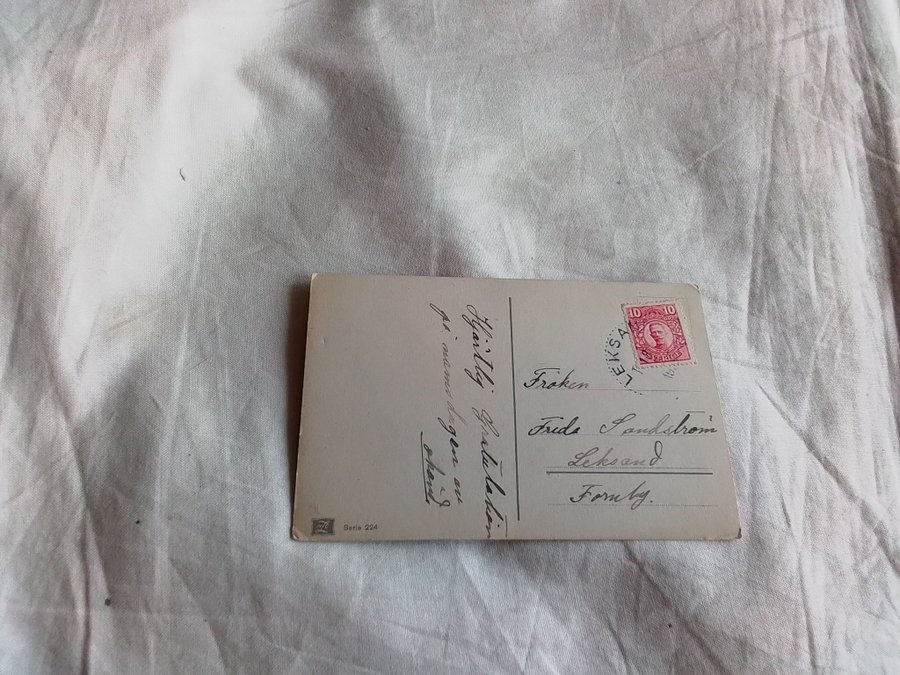 Hjärtlig Gratulation
på namnsdagen av
okänd
Fröken
Frida Sandström
Leksand
Fornby.
10 10
SVERIGE
LEKSA
Serie 224